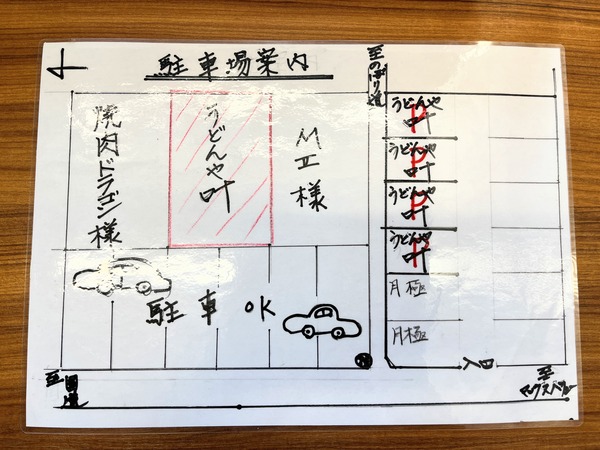 駐車場案内
至のぼり道
焼肉ドラゴン様
うどんや叶
様
うどんや
叶
P
うどんや
叶
P
うどんや
叶
P
うどんや
叶
P
月極
月極
駐車OK
入口
至国道
至
マックスバリュー